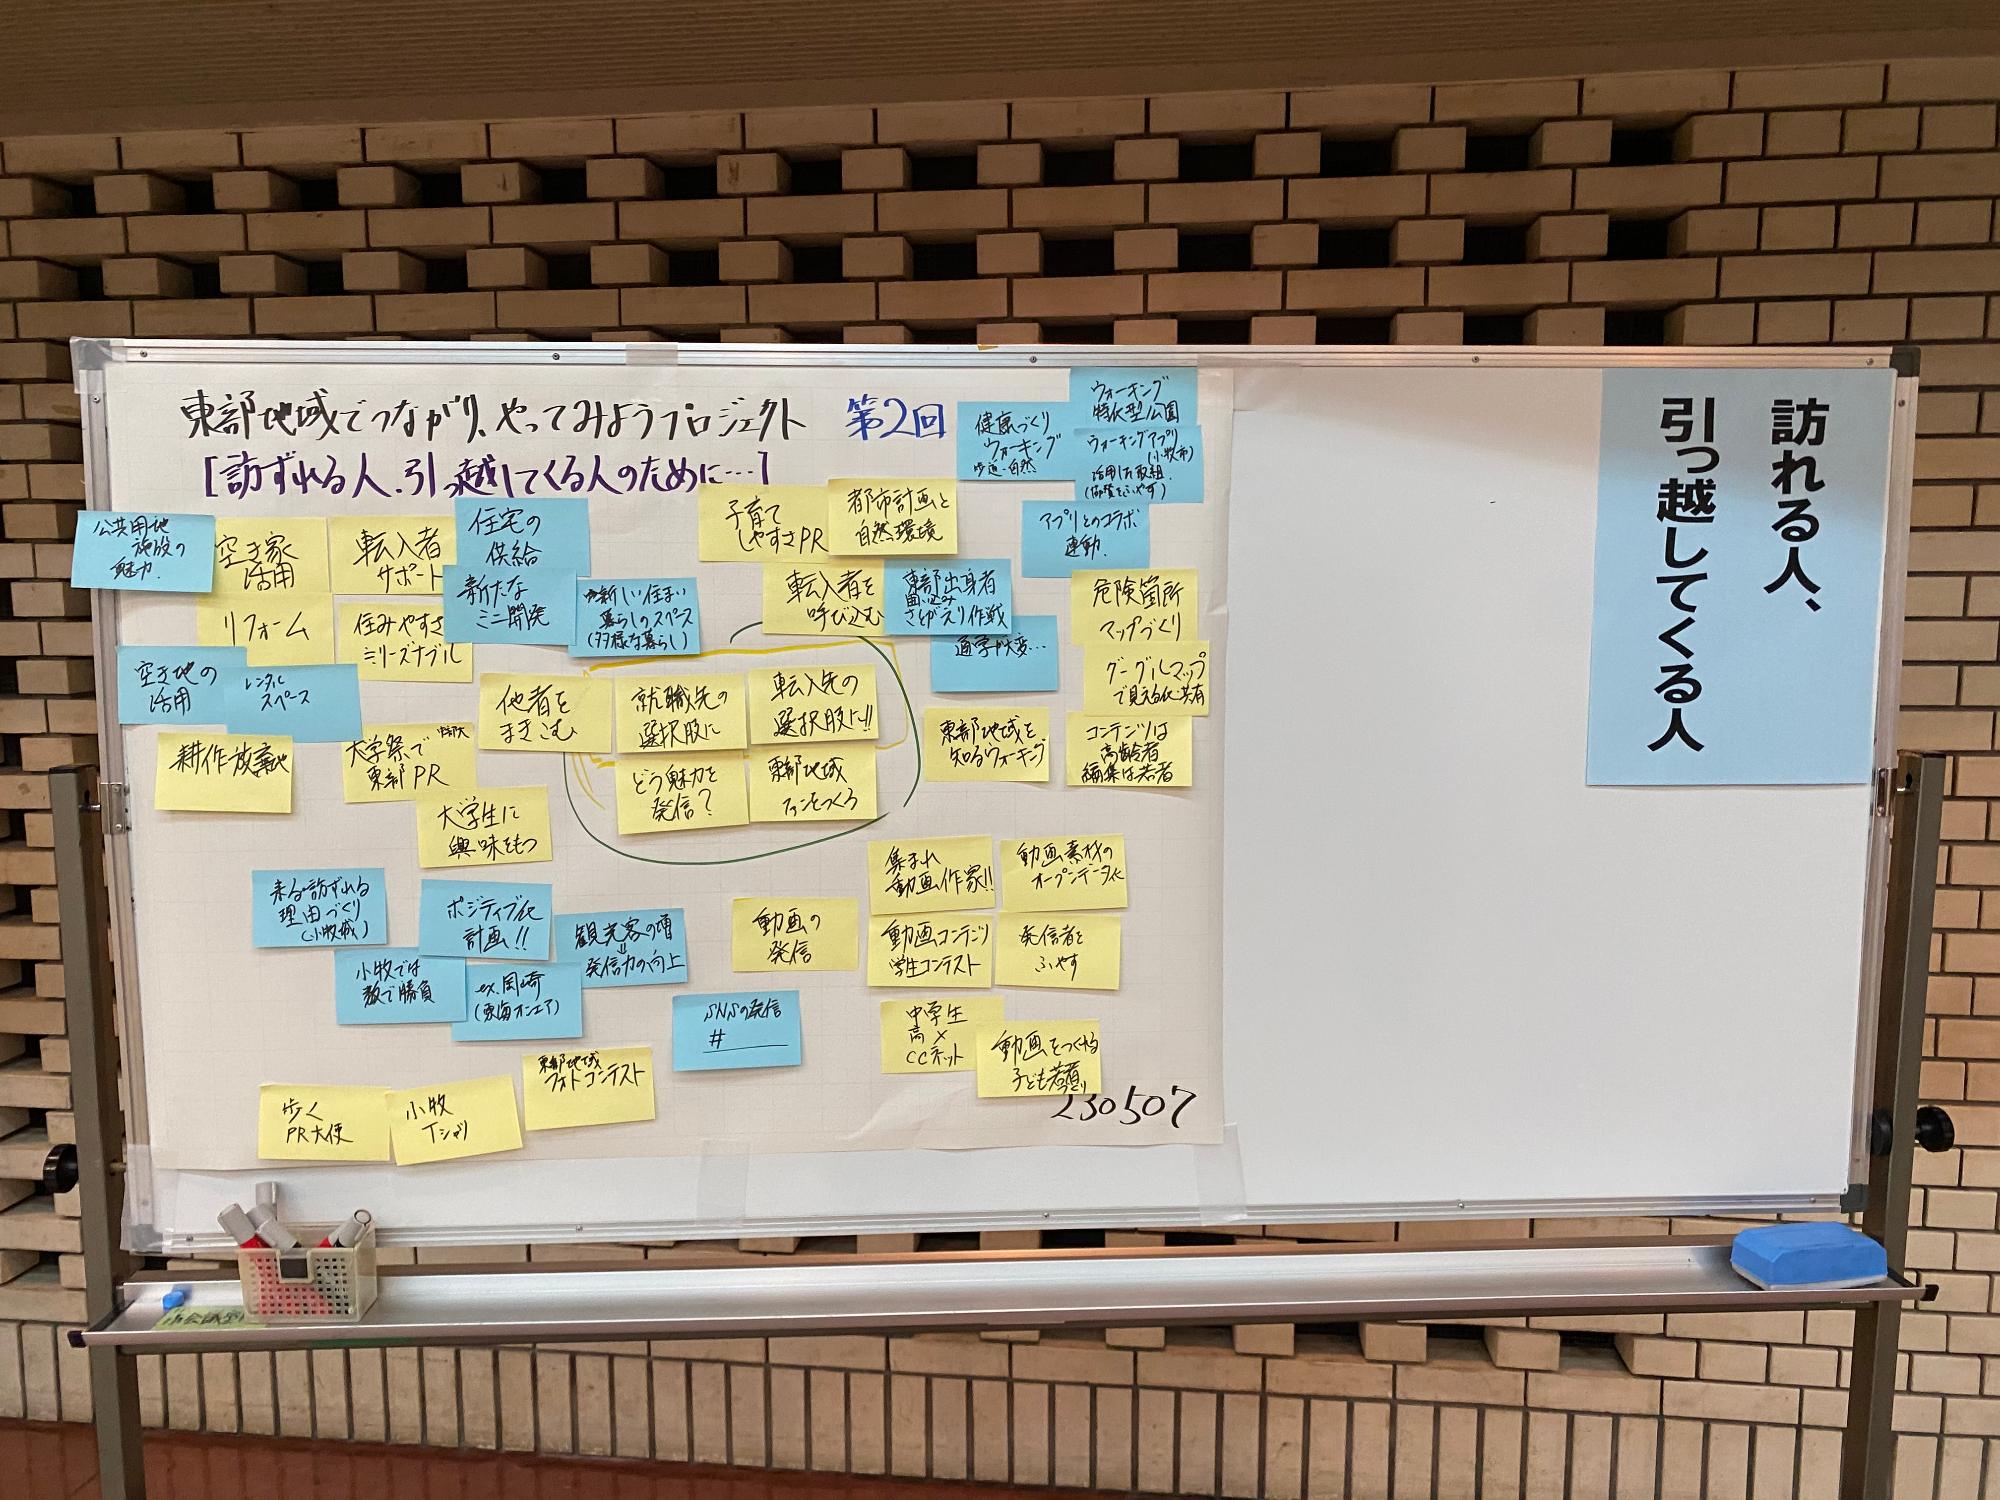 東部地域でつながり、やってみようプロジェクト 第2回
[訪ずれる人、引っ越してくる人のために…]
健康づくり
ウォーキング
歩道・自然
ウォーキング
特化型公園
ウォーキングアプリ
(小牧市)
活用した取組
アプリとのコラボ
連動.
公共用地
施設の
魅力.
空き家
活用
転入者
サポート
住宅の
供給
子育て
しやすさPR
都市計画と
自然環境
リフォーム
住みやすさ
ミリーズナブル
新たな
ミニ開発
新しい住まい
暮らしのスペース
(多様な暮らし)
転入者を
呼び込む
東部出身者
囲い込み
通学が大変…
危険箇所
マップづくり
グーグルマップ
で見える化・共有
空き地の
活用
レンタル
スペース
他者を
まきこむ
就職先の
選択肢に
転入先の
選択肢に!!
どう魅力を
発信?
東部地域
ファンをつくる
東部地域を
知るウォーキング
コンテンツは
高齢者
編集は若者
耕作放棄地
大学祭で
東部PR
大学生に
興味をもつ
来る・訪ずれる
理由づくり
(小牧城)
ポジティブ化
計画!!
観光客の増
発信力の向上
小牧では
数で勝負
ex.岡崎
(東海オンエア)
動画の
発信
集まれ
動画作家!!
動画素材の
オープンデータ化
動画コンテンツ
学生コンテスト
発信者を
ふやす
SNSの発信
#
中学生
高 ×
CCネット
動画をつくれる
子ども若者
づくり
東部地域
フォトコンテスト
歩く
PR大使
小牧
Tシャツ
230507
訪れる人、
引っ越してくる人